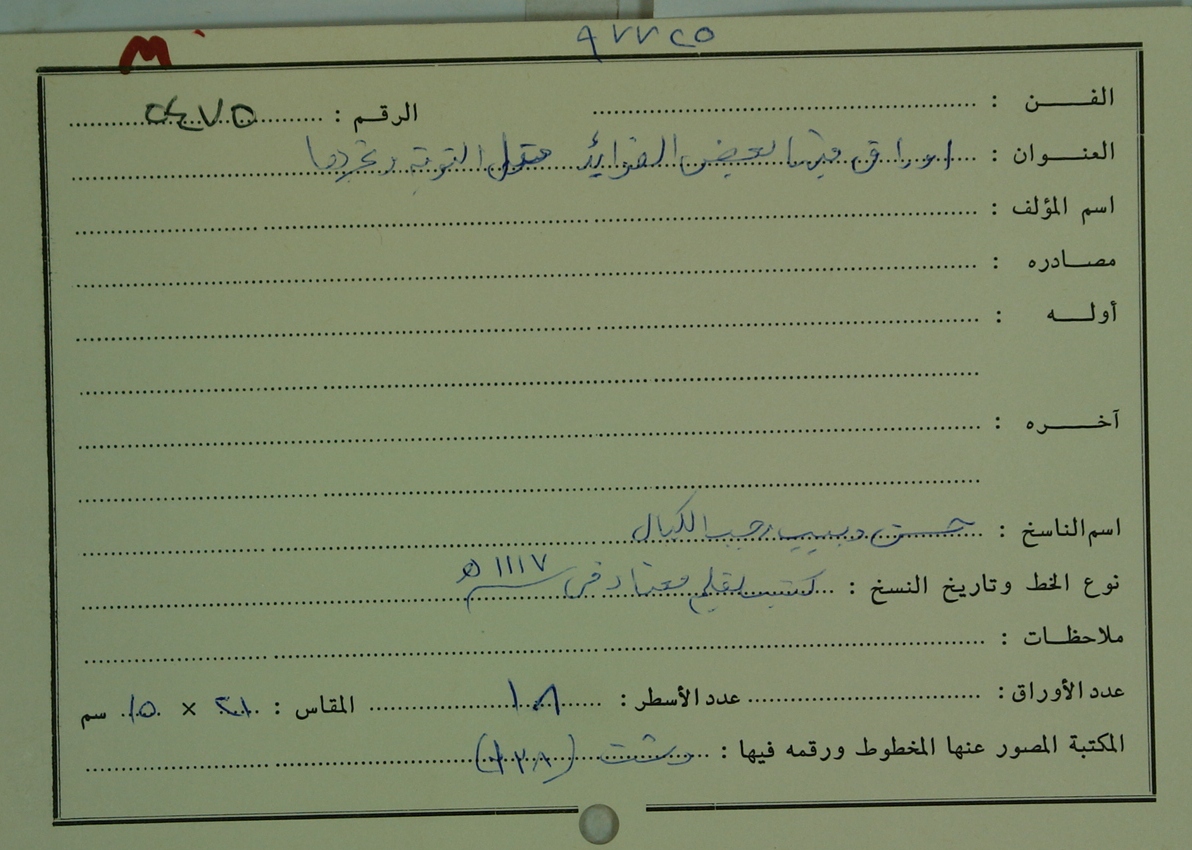 M ٩٧٧٢٥
الفـــن : الرقم : ٢٤٧٥
العنـــوان : اوراق فيها بعض الفوائد
اسم المؤلف :
مصـــادره :
أولـــه :
آخـــره :
اسم الناسخ : حسن دبيب رجب الكيال
نوع الخط وتاريخ النسخ : كتبت بقلم معتاد في سنة ١١١٧ هـ
ملاحظـــات :
عدد الأوراق : عدد الأسطر : ١٨ المقاس : ٢١ × ١٥ سم
المكتبة المصور عنها المخطوط ورقمه فيها : دشت (١٢٨)